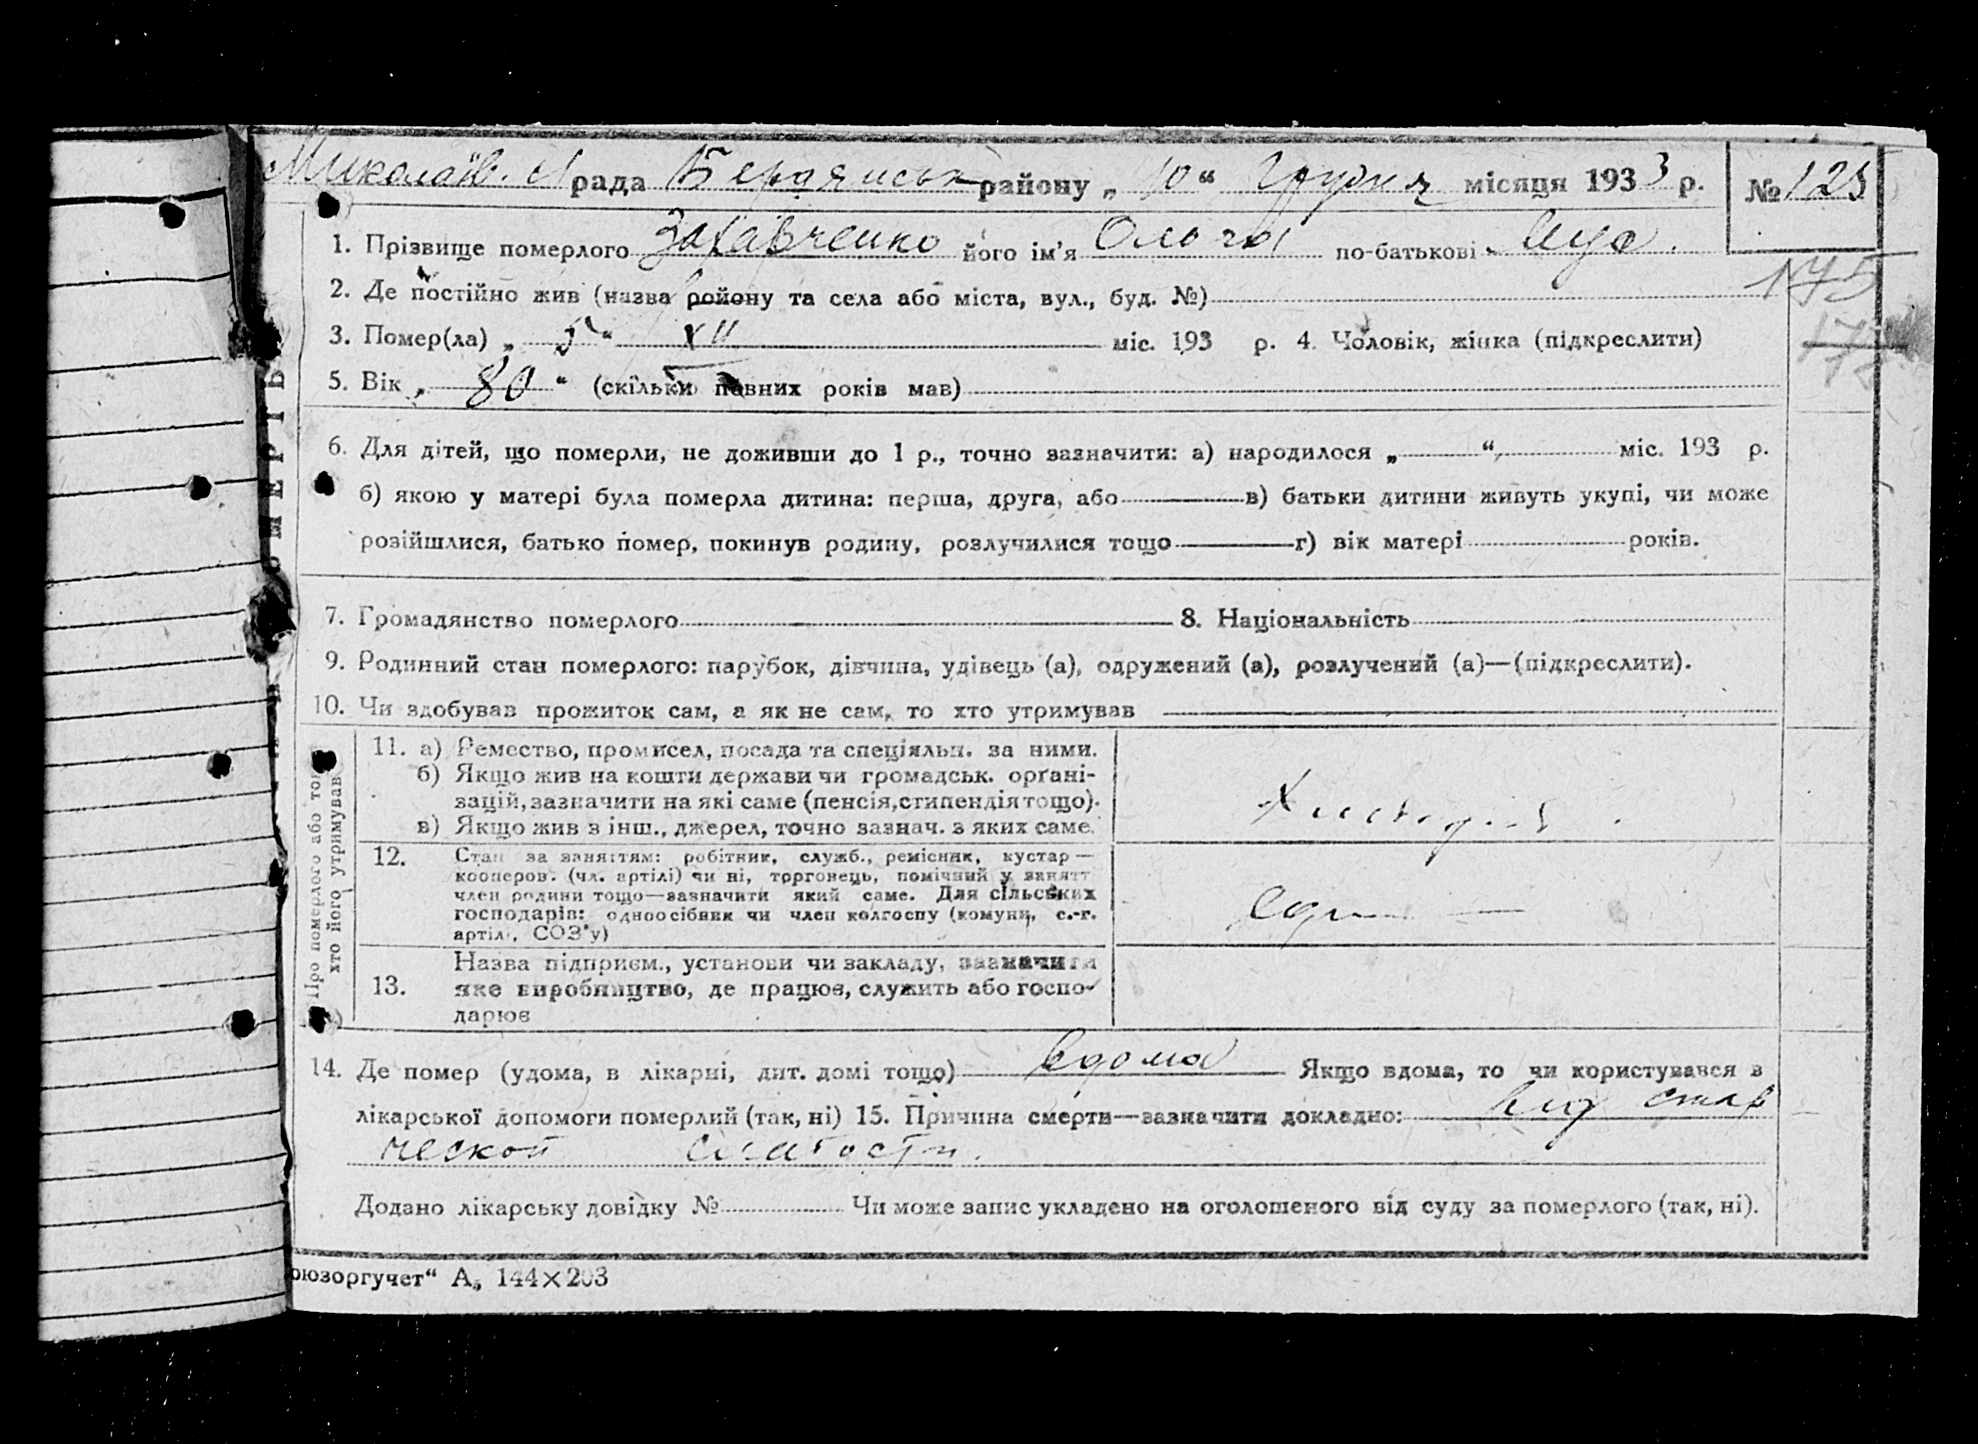 Миколаїв. рада Бердянськ району „ 10 “ Грудня місяця 1933 р. № 125
1. Прізвище померлого Захарченко його ім'я Ольга по-батькові
175
2. Де постійно жив (назва району та села або міста, вул., буд. №)
3. Помер(ла) „ 5 “ XII міс. 193 р. 4. Чоловік, жінка (підкреслити)
5. Вік „ 80 “ (скільки повних років мав)
6. Для дітей, що померли, не доживши до 1 р., точно зазначити: а) народилося „ “, міс. 193 р.
б) якою у матері була померла дитина: перша, друга, або в) батьки дитини живуть укупі, чи може
розійшлися, батько помер, покинув родину, розлучилися тощо г) вік матері років.
7. Громадянство померлого 8. Національність
9. Родинний стан померлого: парубок, дівчина, удівець (а), одружений (а), розлучений (а)—(підкреслити).
10. Чи здобував прожиток сам, а як не сам, то хто утримував
Про померлого або того
хто його утримував
11. а) Ремество, промисел, посада та спеціяльн. за ними.
б) Якщо жив на кошти держави чи громадськ. орґані-
зацій, зазначити на які саме (пенсія, стипендія тощо).
в) Якщо жив з інш., джерел, точно зазнач. з яких саме.
12. Стан за заняттям: робітник, служб., ремісник, кустар —
кооперов. (чл. артілі) чи ні, торговець, помічний у занятт
член родини тощо—зазначити який саме. Для сільських
господарів: одноосібник чи член колгоспу (комуни, с.-г.
артілі, СОЗ'у)
Назва підприєм., установи чи закладу, зазначити
13. яке виробництво, де працює, служить або госпо-
дарює
14. Де помер (удома, в лікарні, дит. домі тощо) вдома Якщо вдома, то чи користувався в
лікарської допомоги померлий (так, ні) 15. Причина смерти—зазначити докладно: від стар
ческой слабости.
Додано лікарську довідку № Чи може запис укладено на оголошеного від суду за померлого (так, ні).
оюзоргучет“ А₅ 144×203